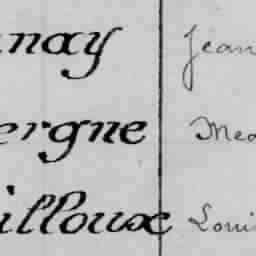 nay Jean
ergne Med
illoux Loui